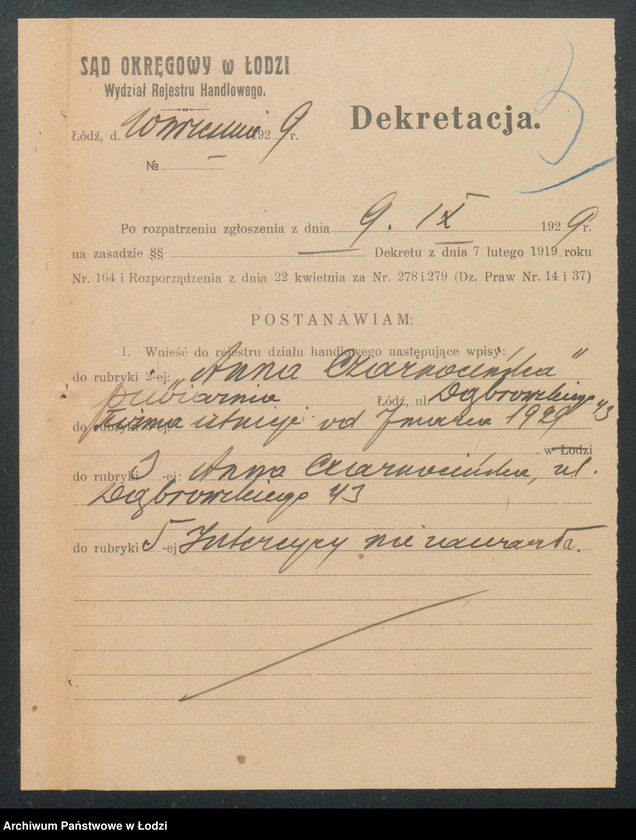 SĄD OKRĘGOWY w ŁODZI
Wydział Rejestru Handlowego.
Dekretacja.
3
Łódź, d. Września 1929 r.
№ —
Po rozpatrzeniu zgłoszenia z dnia 9. IX 1929 r.
na zasadzie §§ — Dekretu z dnia 7 lutego 1919 roku
Nr. 164 i Rozporządzenia z dnia 22 kwietnia za Nr. 278 i 279 (Dz. Praw Nr. 14 i 37)
POSTANAWIAM:
1. Wnieść do rejestru działu handlowego następujące wpisy:
do rubryki 2-ej: „Anna Czarnocińska”
piwiarnia Łódź, ul. Dąbrowskiego 43
do rubryki -ej Firma istnieje od 7 marca 1929
w Łodzi
do rubryki 3 -ej: Anna Czarnocińska, ul.
Dąbrowskiego 43
do rubryki 5 -ej Intercyzy nie zawarła.
Archiwum Państwowe w Łodzi